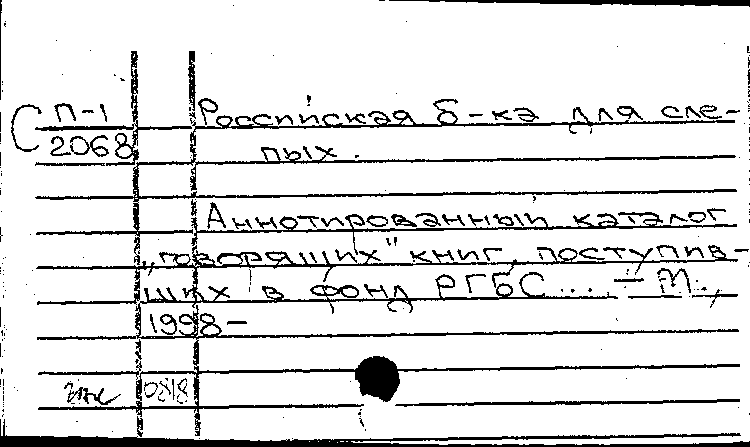 С П-1 Российская б-ка для сле-
2068 пых.
Аннотированный каталог
„говорящих" книг, поступив-
ших в фонд РГБС... – М.,
1998 –
0818